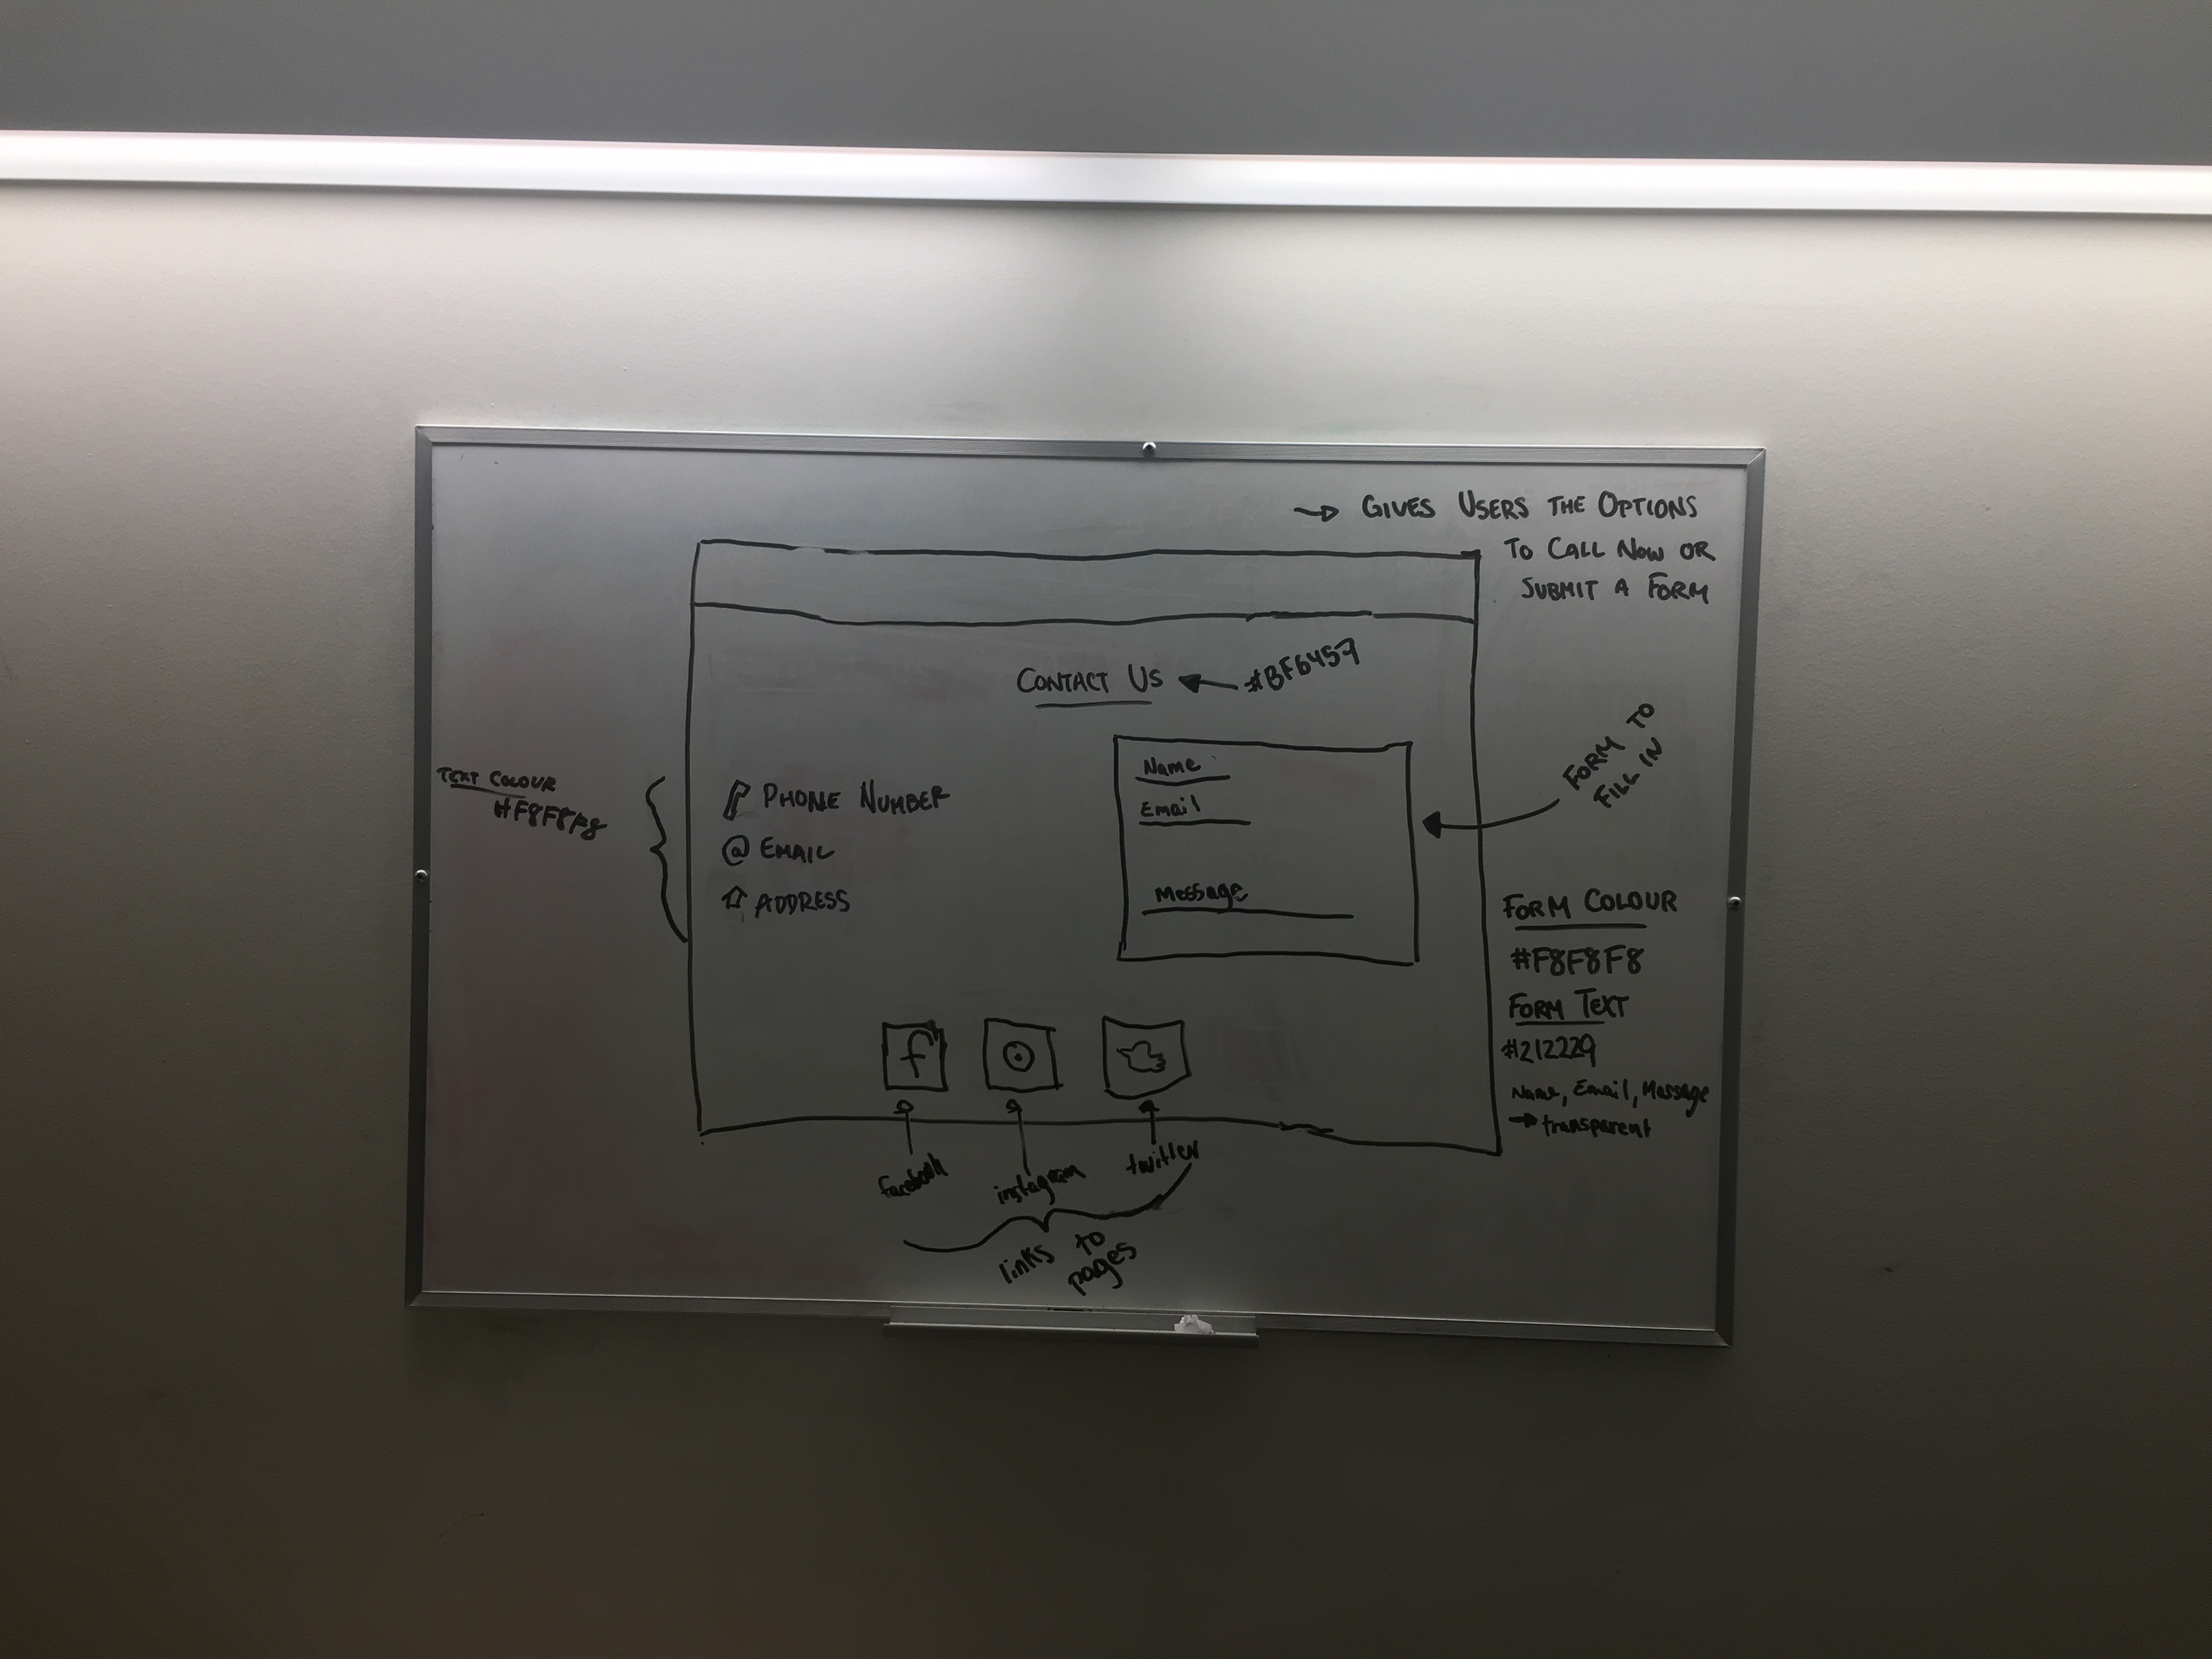 → GIVES USERS THE OPTIONS
TO CALL NOW OR
SUBMIT A FORM
CONTACT US
#BF6457
TEXT COLOUR
#F8F8F8
PHONE NUMBER
@ EMAIL
ADDRESS
Name
Email
Message
FORM TO
FILL IN
FORM COLOUR
#F8F8F8
FORM TEXT
#212229
Name, Email, Message
→ transparent
f
facebook
instagram
twitter
links to
pages